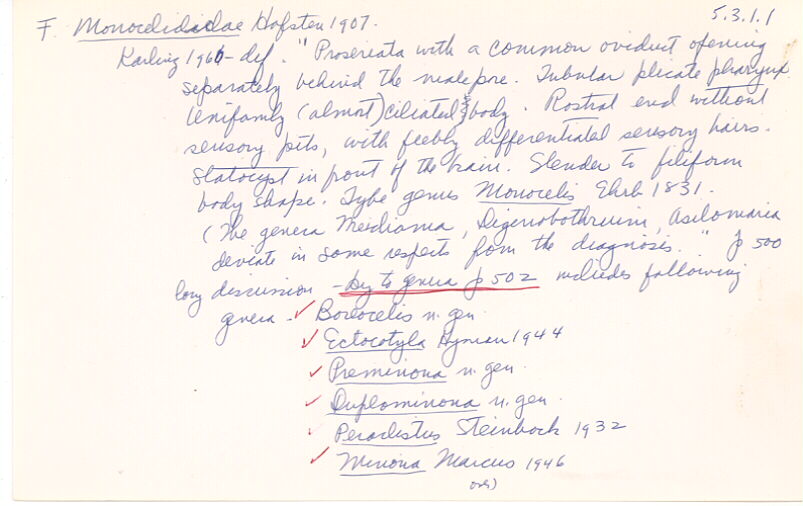 5.3.1.1
F. Monocelididae Hofsten 1907.
Karling 1966 - def. "Proseriata with a common oviduct opening
separately behind the male pore. Tubular plicate pharynx.
Uniformly (almost) ciliated body. Rostral end without
sensory pits, with feebly differentiated sensory hairs.
Statocyst in front of the brain. Slender to filiform
body shape. Type genus Monocelis Ehrb 1831.
(The genera Meidiama, Digenobothrium, Asilomaria
deviate in some respects from the diagnosis." p 500
long discussion - key to genera p 502 includes following
genera - ✓ Boreocelis n. gen.
✓ Ectocotyla Hyman 1944
✓ Preminona n. gen.
✓ Duplominona n. gen.
✓ Peraclistus Steinbock 1932
✓ Minona Marcus 1946
over)